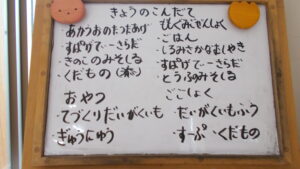 きょうのこんだて
あかうおのたつたあげ
すぱげてぃーさらだ
きのこのみそしる
くだもの
おやつ
てづくりだいがくいも
ぎゅうにゅう
ごはん
しろみさかなむしやき
すぱげてぃーさらだ
とうふのみそしる
ごごしょく
だいがくいもふう
すーぷ・くだもの